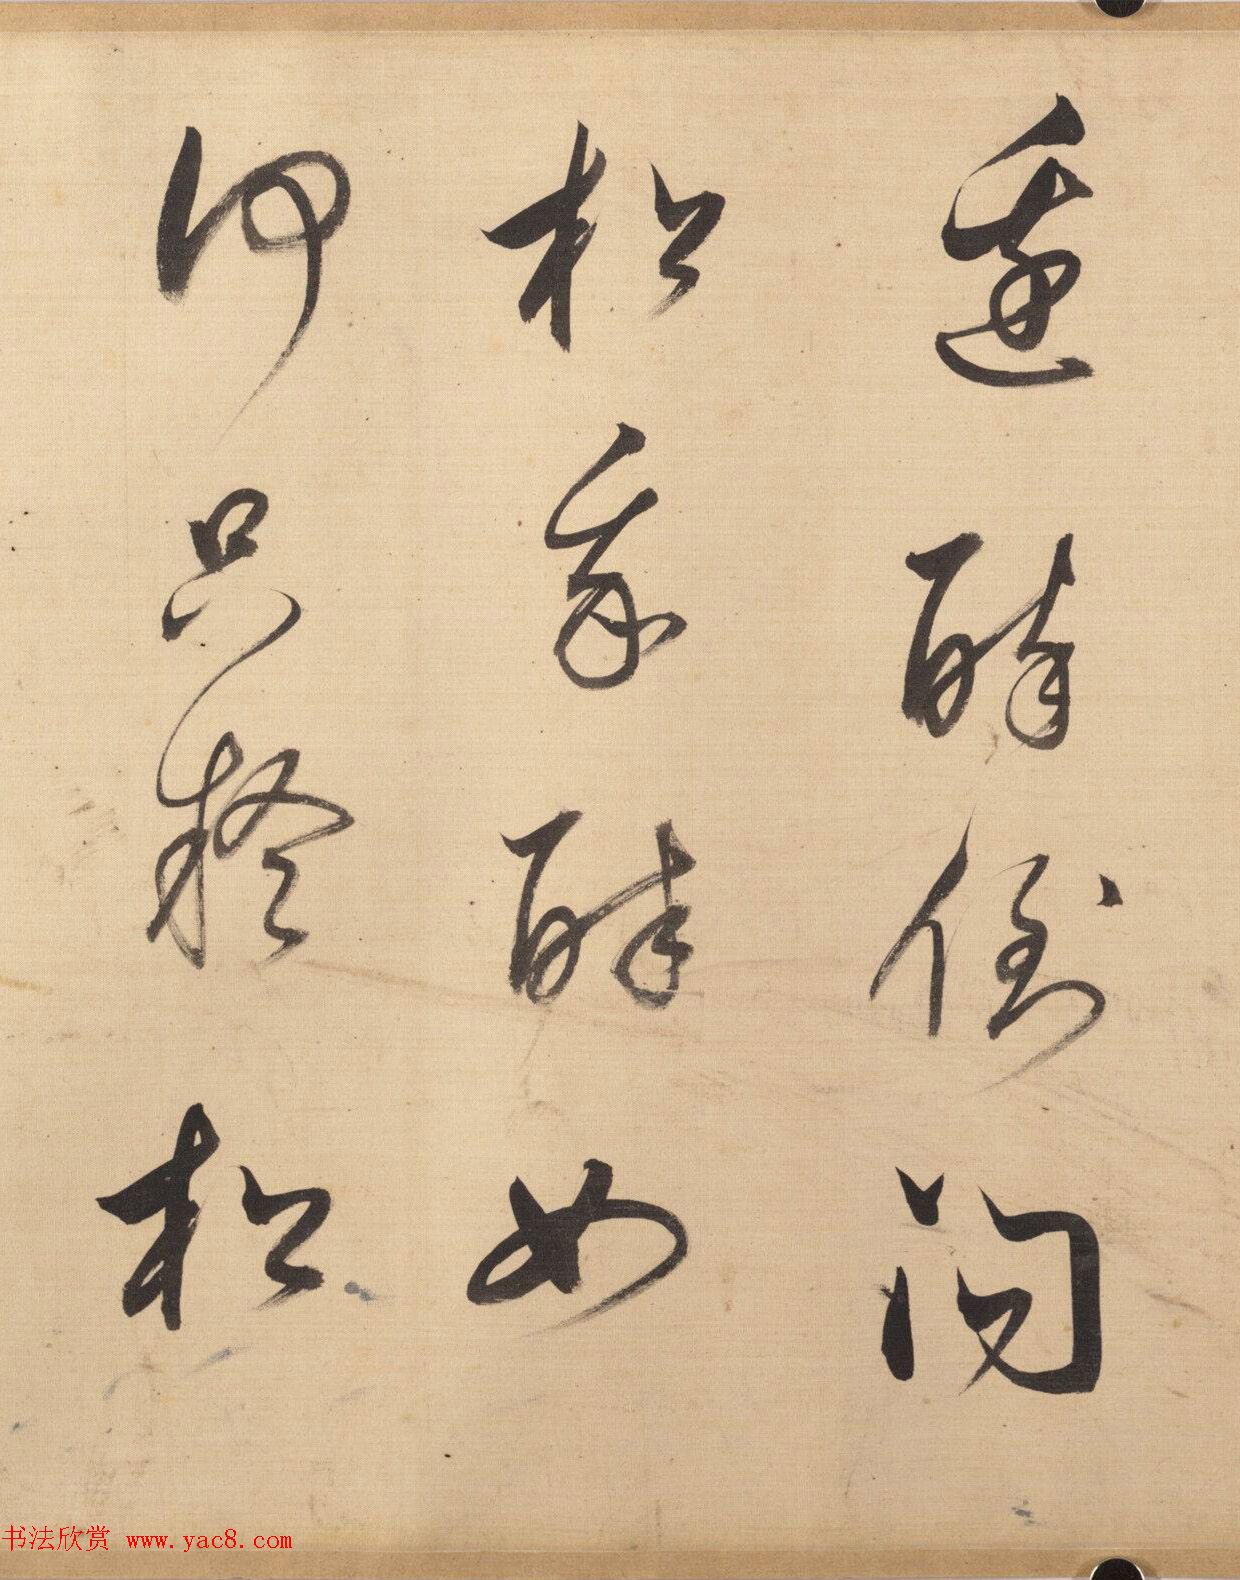 邊醉倒問
松我醉如
何只疑松
书法欣赏 www.yac8.com